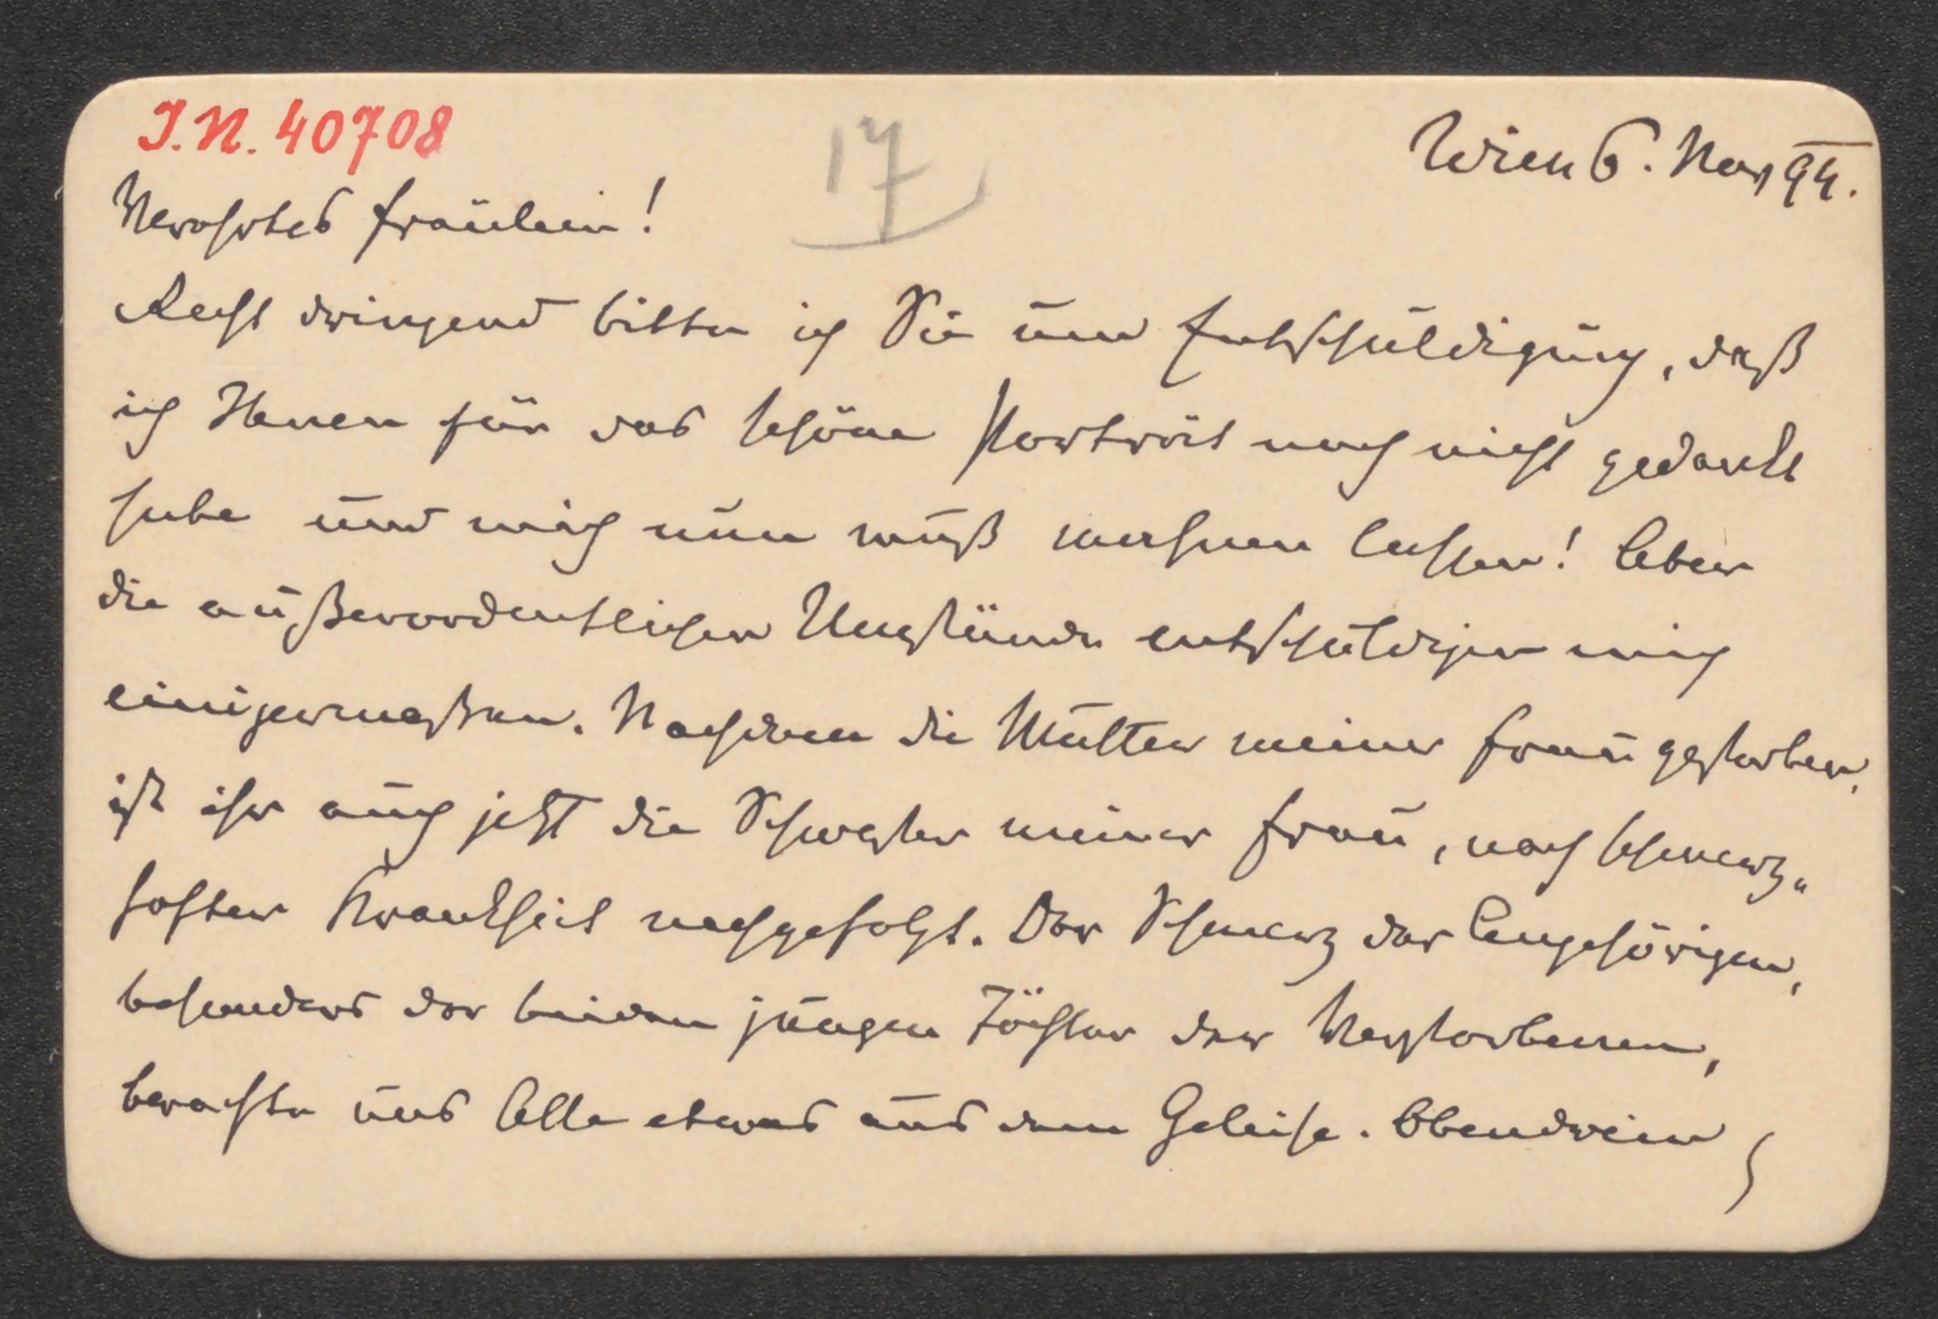 I.N. 40708
17
Wien 6. Nov 94.
Verehrtes Fräulein!
Recht dringend bitte ich Sie um Entschuldigung, daß
ich Ihnen für das schöne Porträt noch nicht gedankt
habe und mich nun muß mahnen lassen! Aber
die außerordentlichen Umstände entschuldigen mich
einigermaßen. Nachdem die Mutter meiner Frau gestorben,
ist ihr auch jetzt die Schwester meiner Frau, nach schmerz„
hafter Krankheit nachgefolgt. Der Schmerz der Angehörigen,
besonders der beiden jungen Töchter der Verstorbenen,
brachte uns Alle etwas aus dem Geleise. Obendrein